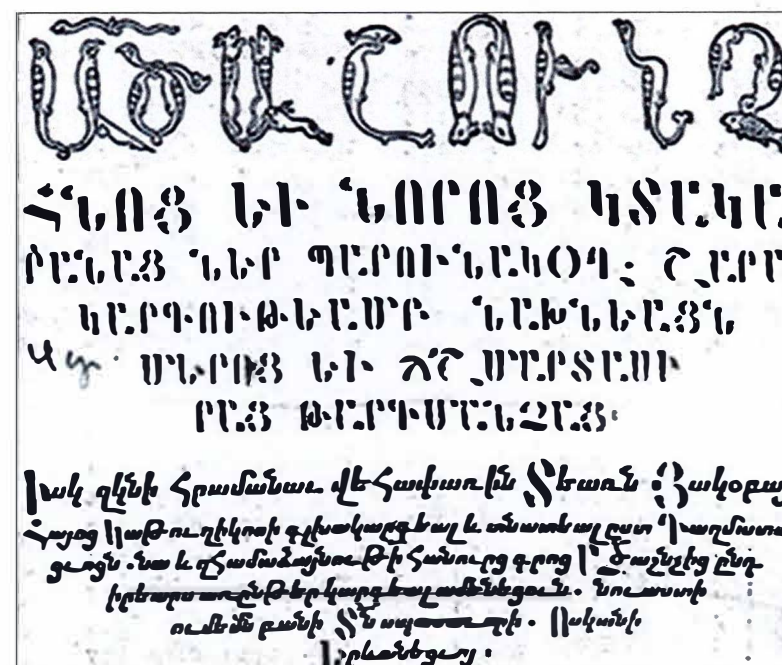 ԱԾԱՇՈՒՆՉ
ՀՆՈՑ ԵՒ ՆՈՐՈՑ ԿՏԱԿԱ
ՐԱՆԱՑ ՆԵՐ ՊԱՐՈՒՆԱԿՕՂ: ՇԱՐԱ
ԿԱՐԳՈՒԹԵԱՄԲ ՆԱԽՆԵԱՑՆ
ՄԵՐՈՑ ԵՒ ՃՇՄԱՐՏԱՍԻ
ՐԱՑ ԹԱՐԳՄԱՆՉԱՑ:
Իսկ զկնի Հրամանաւ վեՀափառին Տեառն Յակօբայ
Հայոց Կաթուղիկոսի գլխակարգեալ և տնատեալ ըստ Դաղմատա
ցւոցն . նա և զՀամաձայնութի գրոց ընդ
իրեարս առընթեր կարգեալ ամենեցուն . նուաստի
ումեմն բանի ՏՆ սպասաւորի . Ոսկանի
Երևանեցւոյ :